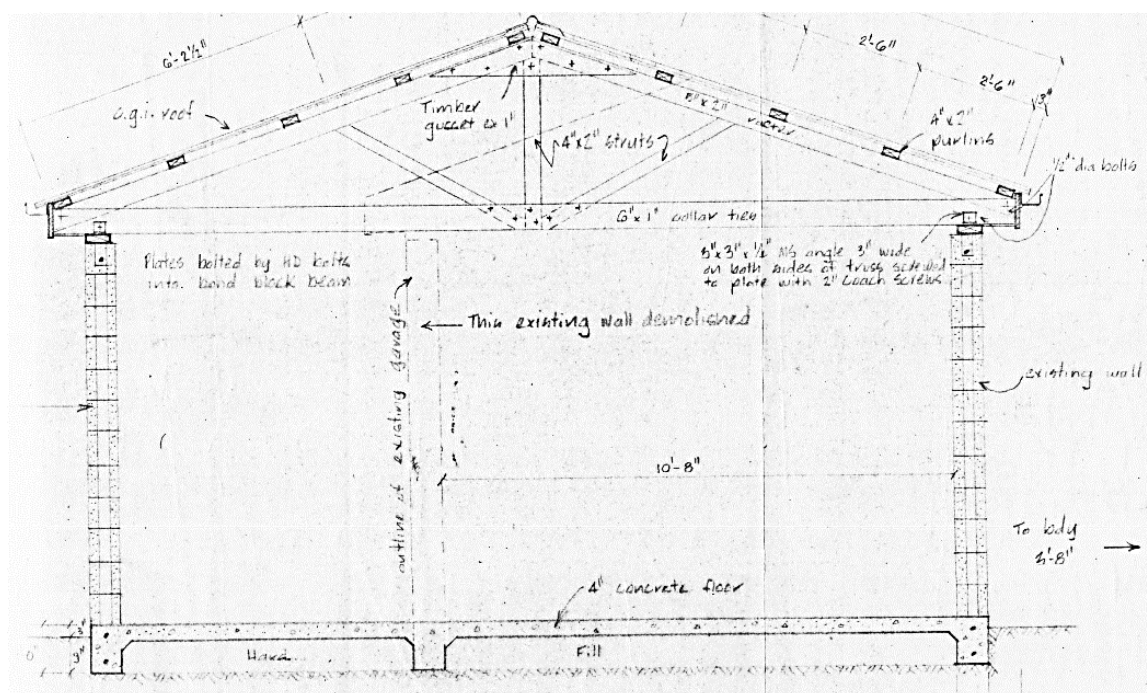 6'-2½"
2'-6"
2'-6"
13"
c.g.i. roof
Timber
gusset ex 1"
4"x2" struts
5"x2"
rafter
4"x2"
purlins
½" dia bolts
6"x1" collar ties
Plates bolted by HD bolts
into bond block beam
5"x3"x½" MS angle 3" wide
on both sides of truss screwed
to plate with 2" Coach Screws
outline of existing garage
This existing wall demolished
existing wall
10'-8"
To bdy
3'-8"
4" concrete floor
Hard
Fill
3"